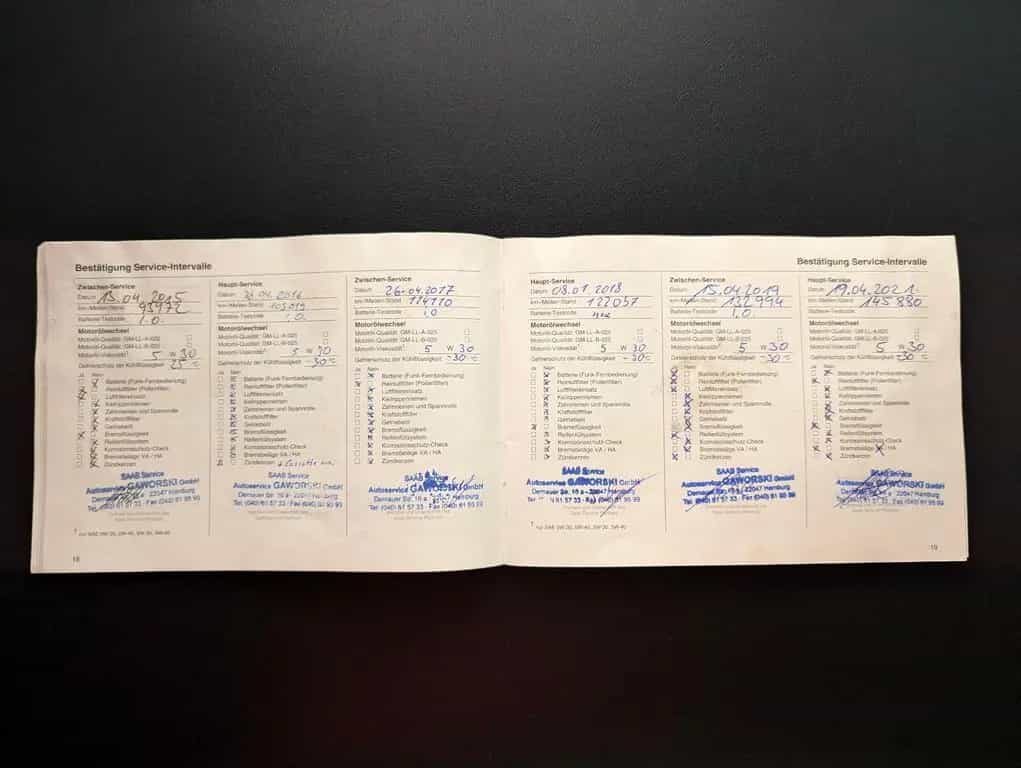 Bestätigung Service-Intervalle
Zwischen-Service
Datum 15.04.2015
km-/Meilen-Stand 93972
Batterie-Testcode 1.0.
Motorölwechsel
Motoröl-Qualität: GM-LL-A-025
Motoröl-Qualität: GM-LL-B-025
Motoröl-Viskosität¹ 5 W 30
Gefrierschutz der Kühlflüssigkeit -25 °C
Ja Nein
Batterie (Funk-Fernbedienung)
Reinluftfilter (Pollenfilter)
Luftfiltereinsatz
Keilrippenriemen
Zahnriemen und Spannrolle
Kraftstofffilter
Getriebeöl
Bremsflüssigkeit
Reifenfüllsystem
Korrosionsschutz-Check
Bremsbeläge VA / HA
Zündkerzen
SAAB Service
Autoservice GAWORSKI GmbH
Dernauer Str. 16 a · 22047 Hamburg
Tel. (040) 61 57 33 · Fax (040) 61 95 99
Haupt-Service
Datum 21.04.2016
km-/Meilen-Stand
Batterie-Testcode 1.0
Motorölwechsel
Motoröl-Qualität: GM-LL-A-025
Motoröl-Qualität: GM-LL-B-025
Motoröl-Viskosität¹ 5 W 30
Gefrierschutz der Kühlflüssigkeit -30 °C
Ja Nein
Batterie (Funk-Fernbedienung)
Reinluftfilter (Pollenfilter)
Luftfiltereinsatz
Keilrippenriemen
Zahnriemen und Spannrolle
Kraftstofffilter
Getriebeöl
Bremsflüssigkeit
Reifenfüllsystem
Korrosionsschutz-Check
Bremsbeläge VA / HA
Zündkerzen
SAAB Service
Autoservice GAWORSKI GmbH
Dernauer Str. 16 a · 22047 Hamburg
Tel. (040) 61 57 33 · Fax (040) 61 95 99
Zwischen-Service
Datum 26.04.2017
km-/Meilen-Stand 114110
Batterie-Testcode 1,0
Motorölwechsel
Motoröl-Qualität: GM-LL-A-025
Motoröl-Qualität: GM-LL-B-025
Motoröl-Viskosität¹ 5 W 30
Gefrierschutz der Kühlflüssigkeit -30 °C
Ja Nein
Batterie (Funk-Fernbedienung)
Reinluftfilter (Pollenfilter)
Luftfiltereinsatz
Keilrippenriemen
Zahnriemen und Spannrolle
Kraftstofffilter
Getriebeöl
Bremsflüssigkeit
Reifenfüllsystem
Korrosionsschutz-Check
Bremsbeläge VA / HA
Zündkerzen
SAAB Service
Autoservice GAWORSKI GmbH
Dernauer Str. 16 a · 22047 Hamburg
Tel. (040) 61 57 33 · Fax (040) 61 95 99
¹ nur SAE 0W-30, 0W-40, 5W-30, 5W-40
18
Bestätigung Service-Intervalle
Haupt-Service
Datum 08.01.2018
km-/Meilen-Stand 122057
Batterie-Testcode
Motorölwechsel
Motoröl-Qualität: GM-LL-A-025
Motoröl-Qualität: GM-LL-B-025
Motoröl-Viskosität¹ 5 W 30
Gefrierschutz der Kühlflüssigkeit -30 °C
Ja Nein
Batterie (Funk-Fernbedienung)
Reinluftfilter (Pollenfilter)
Luftfiltereinsatz
Keilrippenriemen
Zahnriemen und Spannrolle
Kraftstofffilter
Getriebeöl
Bremsflüssigkeit
Reifenfüllsystem
Korrosionsschutz-Check
Bremsbeläge VA / HA
Zündkerzen
SAAB Service
Autoservice GAWORSKI GmbH
Dernauer Str. 16 a · 22047 Hamburg
Tel. 61 57 33 · Fax (040) 61 95 99
Zwischen-Service
Datum 15.04.2019
km-/Meilen-Stand 132994
Batterie-Testcode 1,0
Motorölwechsel
Motoröl-Qualität: GM-LL-A-025
Motoröl-Qualität: GM-LL-B-025
Motoröl-Viskosität¹ 5 W 30
Gefrierschutz der Kühlflüssigkeit -30 °C
Ja Nein
Batterie (Funk-Fernbedienung)
Reinluftfilter (Pollenfilter)
Luftfiltereinsatz
Keilrippenriemen
Zahnriemen und Spannrolle
Kraftstofffilter
Getriebeöl
Bremsflüssigkeit
Reifenfüllsystem
Korrosionsschutz-Check
Bremsbeläge VA / HA
Zündkerzen
SAAB Service
Autoservice GAWORSKI GmbH
Dernauer Str. 16 a · 22047 Hamburg
Tel. (040) 61 57 33 · Fax (040) 61 95 99
Haupt-Service
Datum 19.04.2021
km-/Meilen-Stand 145880
Batterie-Testcode
Motorölwechsel
Motoröl-Qualität: GM-LL-A-025
Motoröl-Qualität: GM-LL-B-025
Motoröl-Viskosität¹ 5 W 30
Gefrierschutz der Kühlflüssigkeit -30 °C
Ja Nein
Batterie (Funk-Fernbedienung)
Reinluftfilter (Pollenfilter)
Luftfiltereinsatz
Keilrippenriemen
Zahnriemen und Spannrolle
Kraftstofffilter
Getriebeöl
Bremsflüssigkeit
Reifenfüllsystem
Korrosionsschutz-Check
Bremsbeläge VA / HA
Zündkerzen
SAAB Service
Autoservice GAWORSKI GmbH
Dernauer Str. 16 a · 22047 Hamburg
Tel. (040) 61 57 33 · Fax (040) 61 95 99
¹ nur SAE 0W-30, 0W-40, 5W-30, 5W-40
19